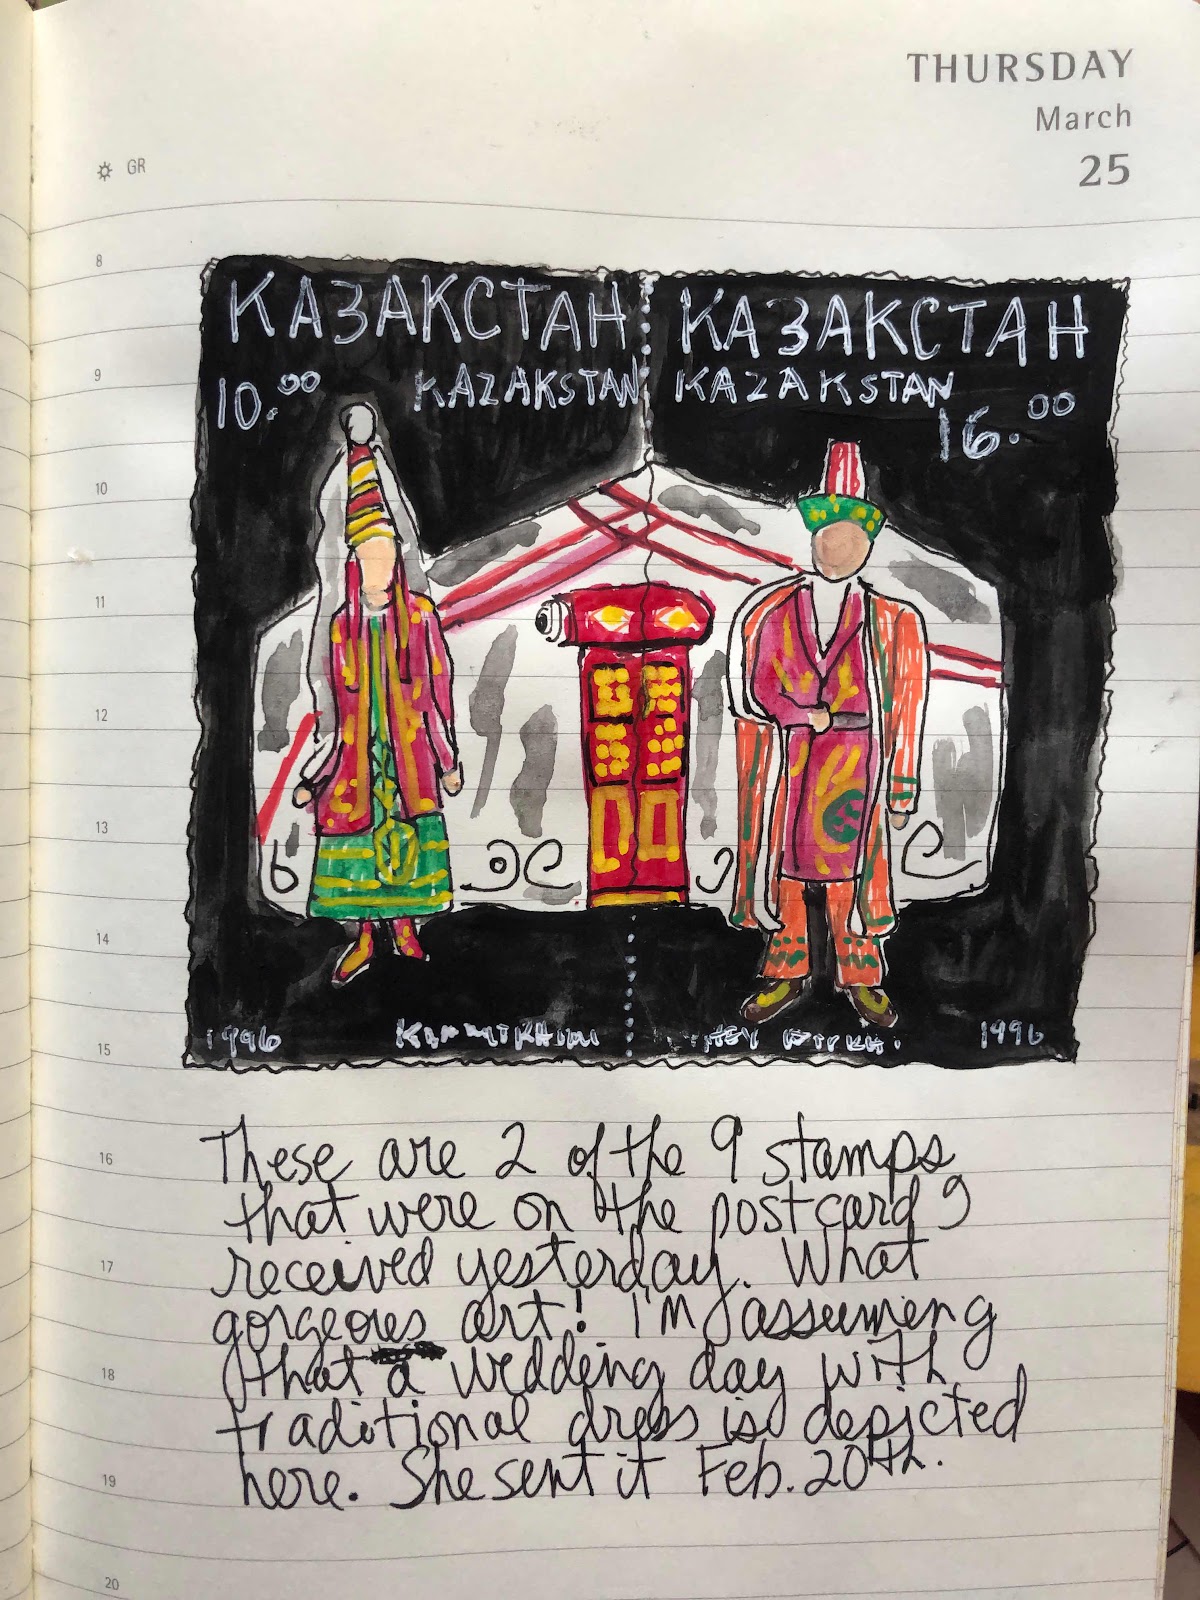 THURSDAY
March
25
GR
8
КАЗАКСТАН КАЗАКСТАН
9
10.00 KAZAKSTAN KAZAKSTAN
16.00
10
11
12
13
14
1996 1996
15
16
These are 2 of the 9 stamps
that were on the postcard I
17
received yesterday. What
gorgeous art! I'M assumeng
18
that a wedding day with
traditional dress is depicted
19
here. She sent it Feb. 20th.
20